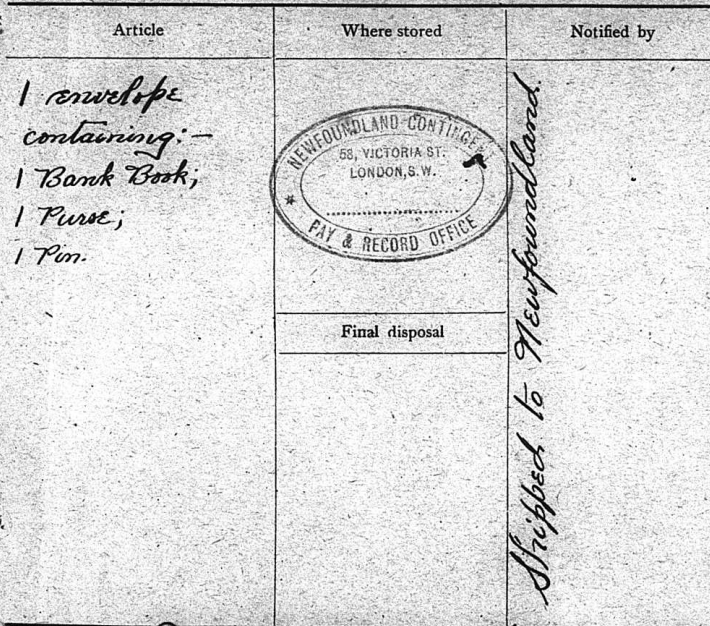 Article
Where stored
Notified by
1 envelope
containing:-
1 Bank Book;
1 Purse;
1 Pin.
NEWFOUNDLAND CONTINGENT
58, VICTORIA ST.
LONDON, S.W.
PAY & RECORD OFFICE
Final disposal
Shipped to Newfoundland.